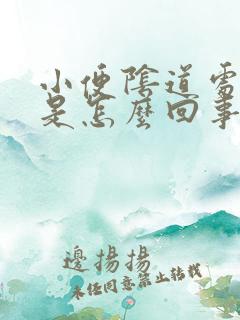 小便陰道需
是怎麼回事
邊揚揚
未经同意禁止转载